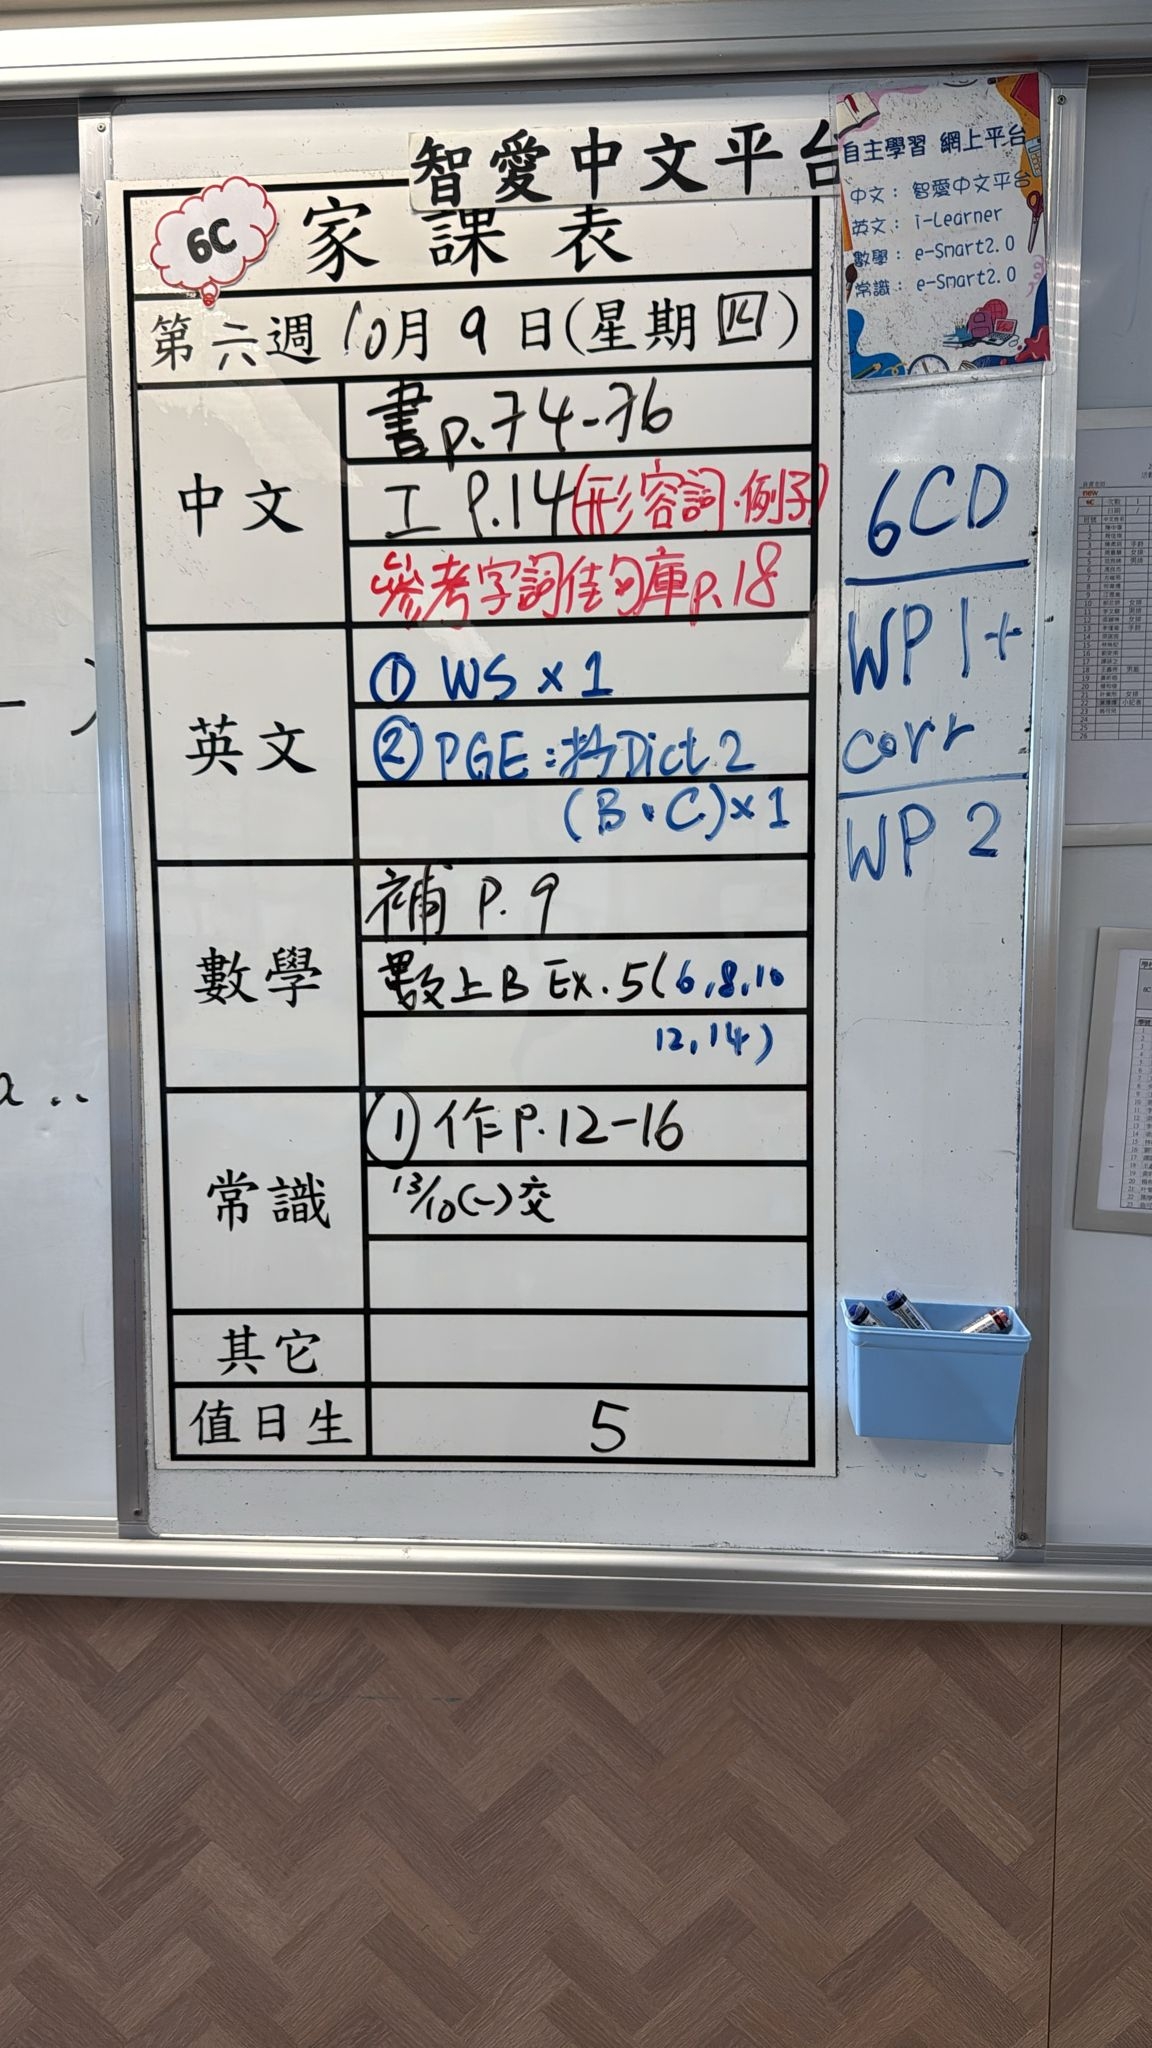 智愛中文平台
6C 家課表
第六週 10月9日(星期四)
中文
書p.74-76
工 P.14(形容詞.例子)
參考字詞佳句庫p.18
英文
① WS x 1
② PGE:抄Dict.2
(B、C)x1
數學
補 P.9
數上B Ex.5(6,8,10
12,14)
常識
① 作P.12-16
13/10(一)交
其它
值日生
5
自主學習 網上平台
中文: 智愛中文平台
英文: i-Learner
數學: e-Smart2.0
常識: e-Smart2.0
6CD
WP 1+
corr
WP 2